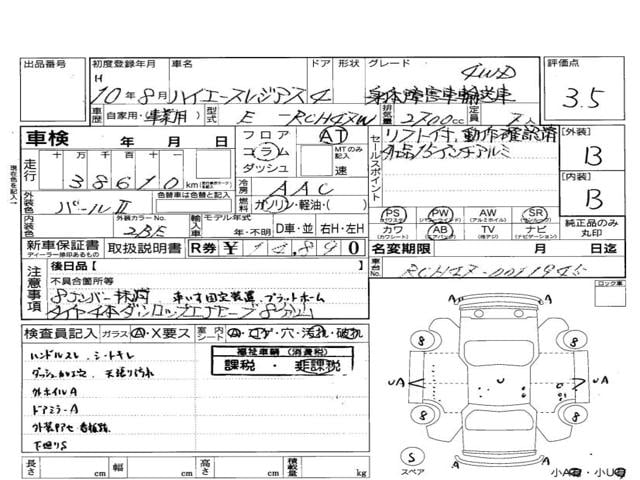 出品番号 初度登録年月 車名 ドア 形状 グレード 評価点
H 10年8月 ハイエースレジアス 4 4WD 身体障害車輸送車 3.5
車歴 自家用・事業用 型式 E-RCH47W 排気量 2700cc 定員 7人
車検 年 月 日 フロア コラム ダッシュ AT MTのみ記入 速 セールスポイント リフト付、動作確認済
社品15インチアルミ
[外装] B
[内装] B
走行 十万 万 千 百 十 一 38610km
冷房 AAC
外装色 パールII 色替車は色替と記入 燃料 ガソリン・軽油・( )
PS パワステ PW パワーウインド AW アルミホイル SR サンルーフ
カワ カワシート AB エアバック TV 液晶テレビ ナビ ナビゲーション
純正品のみ丸印
内装色 外装カラーNo. 2BE 輸入車 モデル年式 年・不明 D車・並 右H・左H
新車保証書 ディーラー捺印あるもの 取扱説明書 R券 ¥14,890 名変期限 月 日迄
注意事項 後日品[ ] 車台No. RCH47-0011945
不具合箇所等 ロック車
8ナンバー抹消 車いす固定装置 プラットホーム
検査員記入 ガラス A・X要ス 室内シート A・コゲ・穴・汚れ・破れ
福祉車輌(消費税)
課税・非課税
ハンドルスレ シートキレ
天張り汚れ
外ホイルA
ドアミラーA
下廻りS
長さ cm 幅 cm 高さ cm 積載量 kg
8 8 8 8
A A A
UA UA
S スペア
小A・小U
現在色を記入→